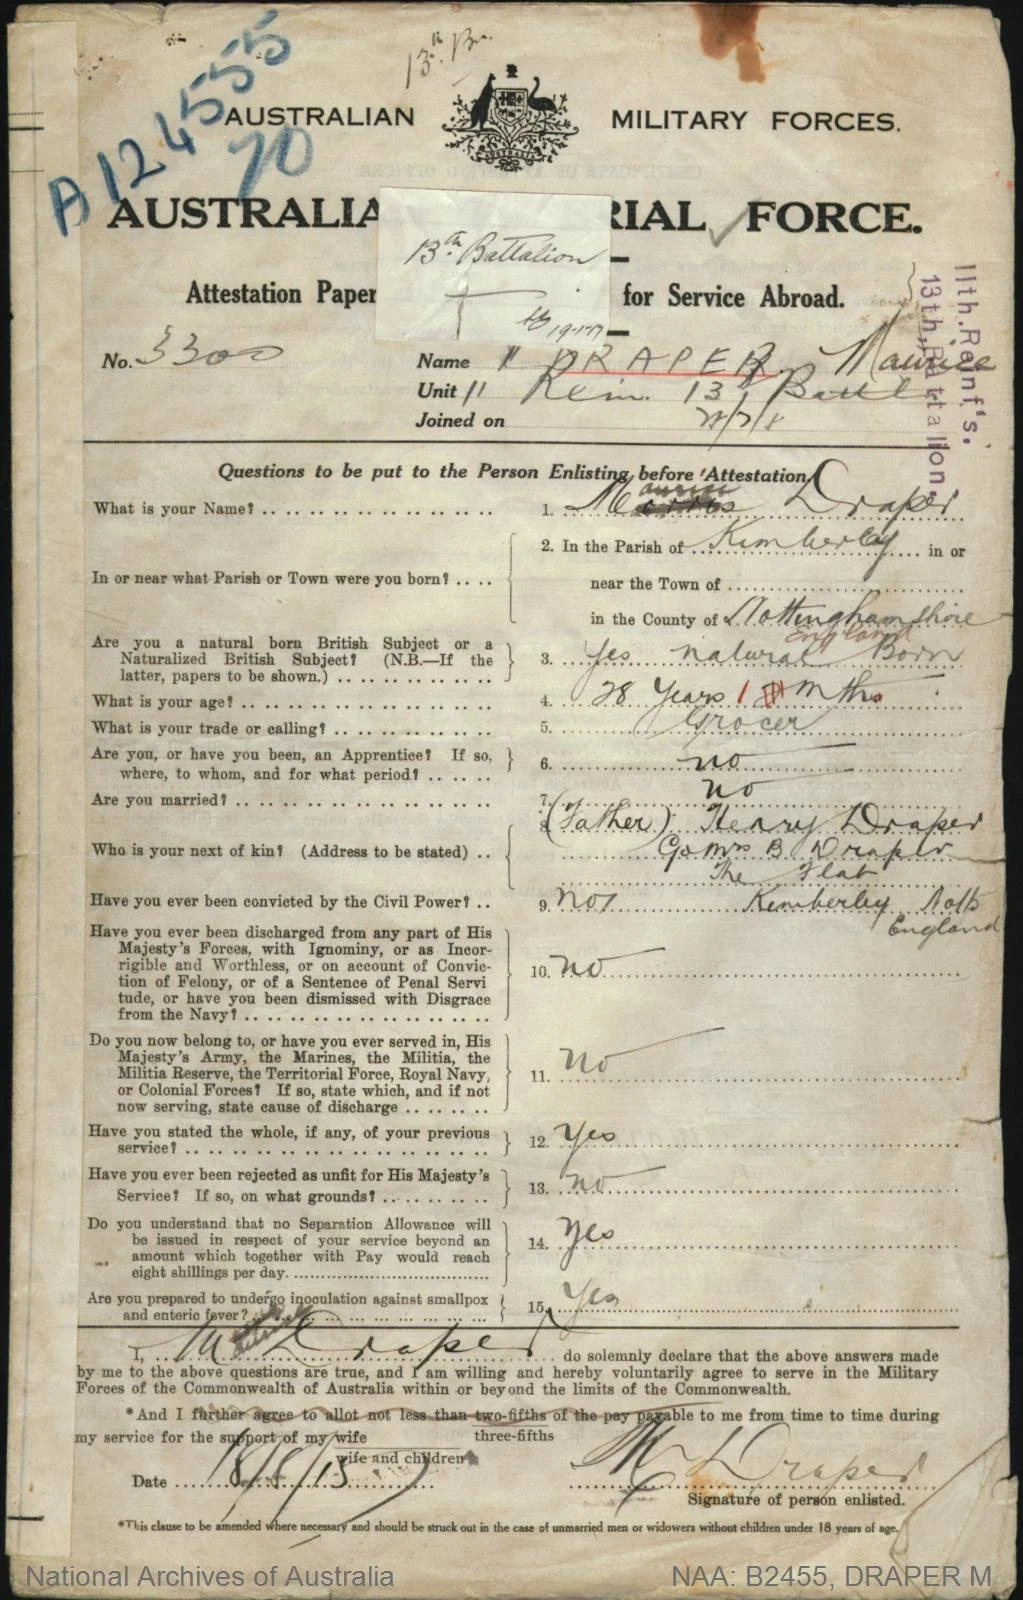 13th Bn.
A124555
70
AUSTRALIAN MILITARY FORCES.
AUSTRALIA RIAL FORCE.
13th Battalion
19-1-17
Attestation Paper for Service Abroad.
11th. Reinf's.
13th. Battalion.
No. 3300 Name DRAPER. Maurice
Unit 11 Rein. 13 Battl
Joined on
Questions to be put to the Person Enlisting before Attestation
What is your Name? 1. Maurice Draper
In or near what Parish or Town were you born? 2. In the Parish of Kimberley in or
near the Town of
in the County of Nottinghamshire
England
Are you a natural born British Subject or a Naturalized British Subject? (N.B.—If the latter, papers to be shown.) 3. Yes natural Born
What is your age? 4. 28 Years 1 mths
What is your trade or calling? 5. Grocer
Are you, or have you been, an Apprentice? If so, where, to whom, and for what period? 6. no
Are you married? 7. no
Who is your next of kin? (Address to be stated) 8. (Father) Henry Draper
C/o Mrs B Draper
The Flat
Kimberley Notts
England
Have you ever been convicted by the Civil Power? 9. no
Have you ever been discharged from any part of His
Majesty's Forces, with Ignominy, or as Incor-
rigible and Worthless, or on account of Convic-
tion of Felony, or of a Sentence of Penal Servi
tude, or have you been dismissed with Disgrace
from the Navy? 10. no
Do you now belong to, or have you ever served in, His
Majesty's Army, the Marines, the Militia, the
Militia Reserve, the Territorial Force, Royal Navy,
or Colonial Forces? If so, state which, and if not
now serving, state cause of discharge 11. no
Have you stated the whole, if any, of your previous
service? 12. Yes
Have you ever been rejected as unfit for His Majesty's
Service? If so, on what grounds? 13. no
Do you understand that no Separation Allowance will
be issued in respect of your service beyond an
amount which together with Pay would reach
eight shillings per day. 14. Yes
Are you prepared to undergo inoculation against smallpox
and enteric fever? 15. Yes
I, M Draper do solemnly declare that the above answers made
by me to the above questions are true, and I am willing and hereby voluntarily agree to serve in the Military
Forces of the Commonwealth of Australia within or beyond the limits of the Commonwealth.
*And I further agree to allot not less than two-fifths of the pay payable to me from time to time during
three-fifths
my service for the support of my wife
wife and children
Date 18/8/15 M Draper
Signature of person enlisted.
*This clause to be amended where necessary and should be struck out in the case of unmarried men or widowers without children under 18 years of age.
National Archives of Australia NAA: B2455, DRAPER M